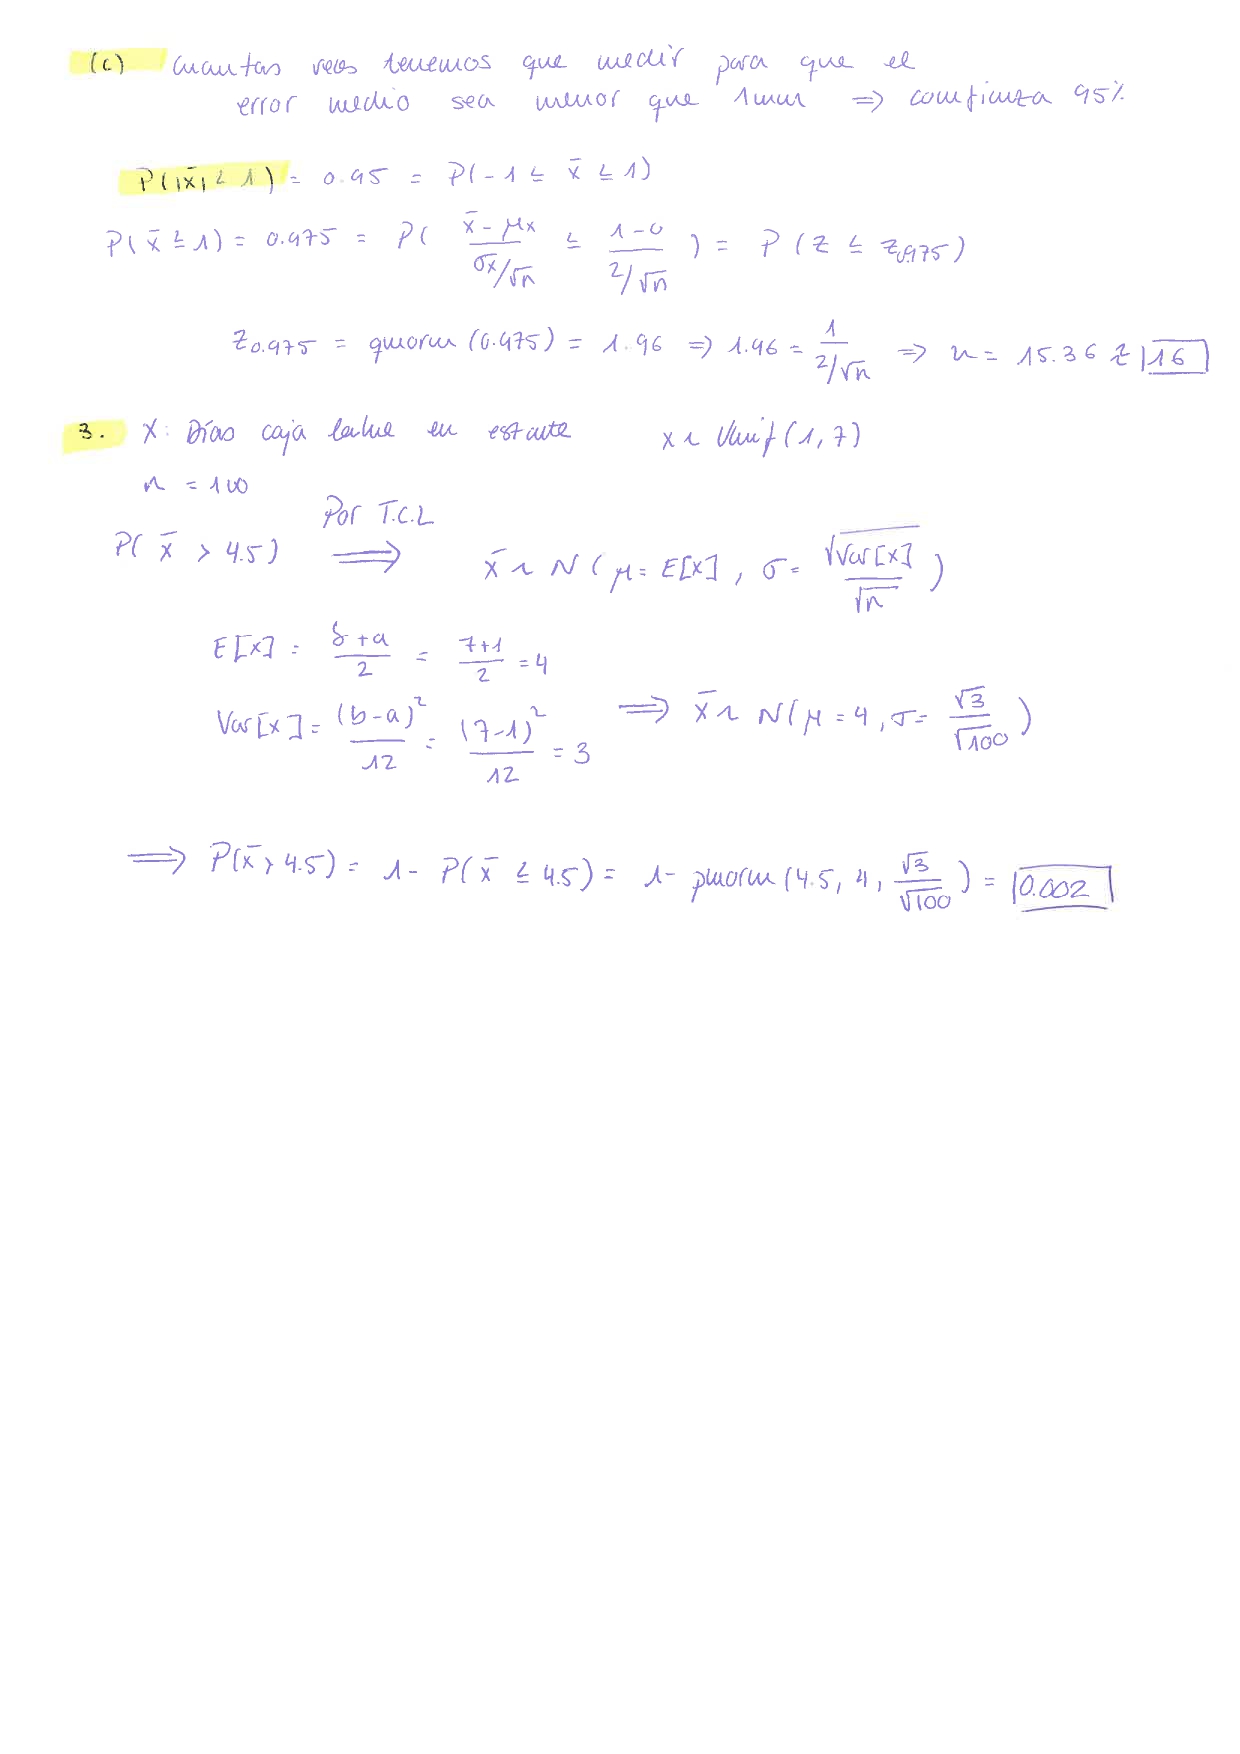 (c) Cuantas veces tenemos que medir para que el
error medio sea menor que 1mm => confianza 95%
P(|x̄| ≤ 1) = 0.95 = P(-1 ≤ x̄ ≤ 1)
P(x̄ ≤ 1) = 0.975 = P( (x̄ - μx)/(σx/√n) ≤ (1-0)/(2/√n) ) = P(Z ≤ Z0.975)
Z0.975 = qnorm(0.975) = 1.96 => 1.96 = 1/(2/√n) => n = 15.36 ≈ 16
3. X: Días caja leche en estante x ~ Unif(1,7)
n = 100
Por T.C.L
P( x̄ > 4.5) ⟹ x̄ ~ N( μ = E[x], σ = √Var[x]/√n )
E[x] = (b+a)/2 = (7+1)/2 = 4
Var[x] = (b-a)²/12 = (7-1)²/12 = 3 ⟹ x̄ ~ N(μ = 4, σ = √3/√100)
⟹ P(x̄ > 4.5) = 1 - P(x̄ ≤ 4.5) = 1 - pnorm(4.5, 4, √3/√100) = 0.002